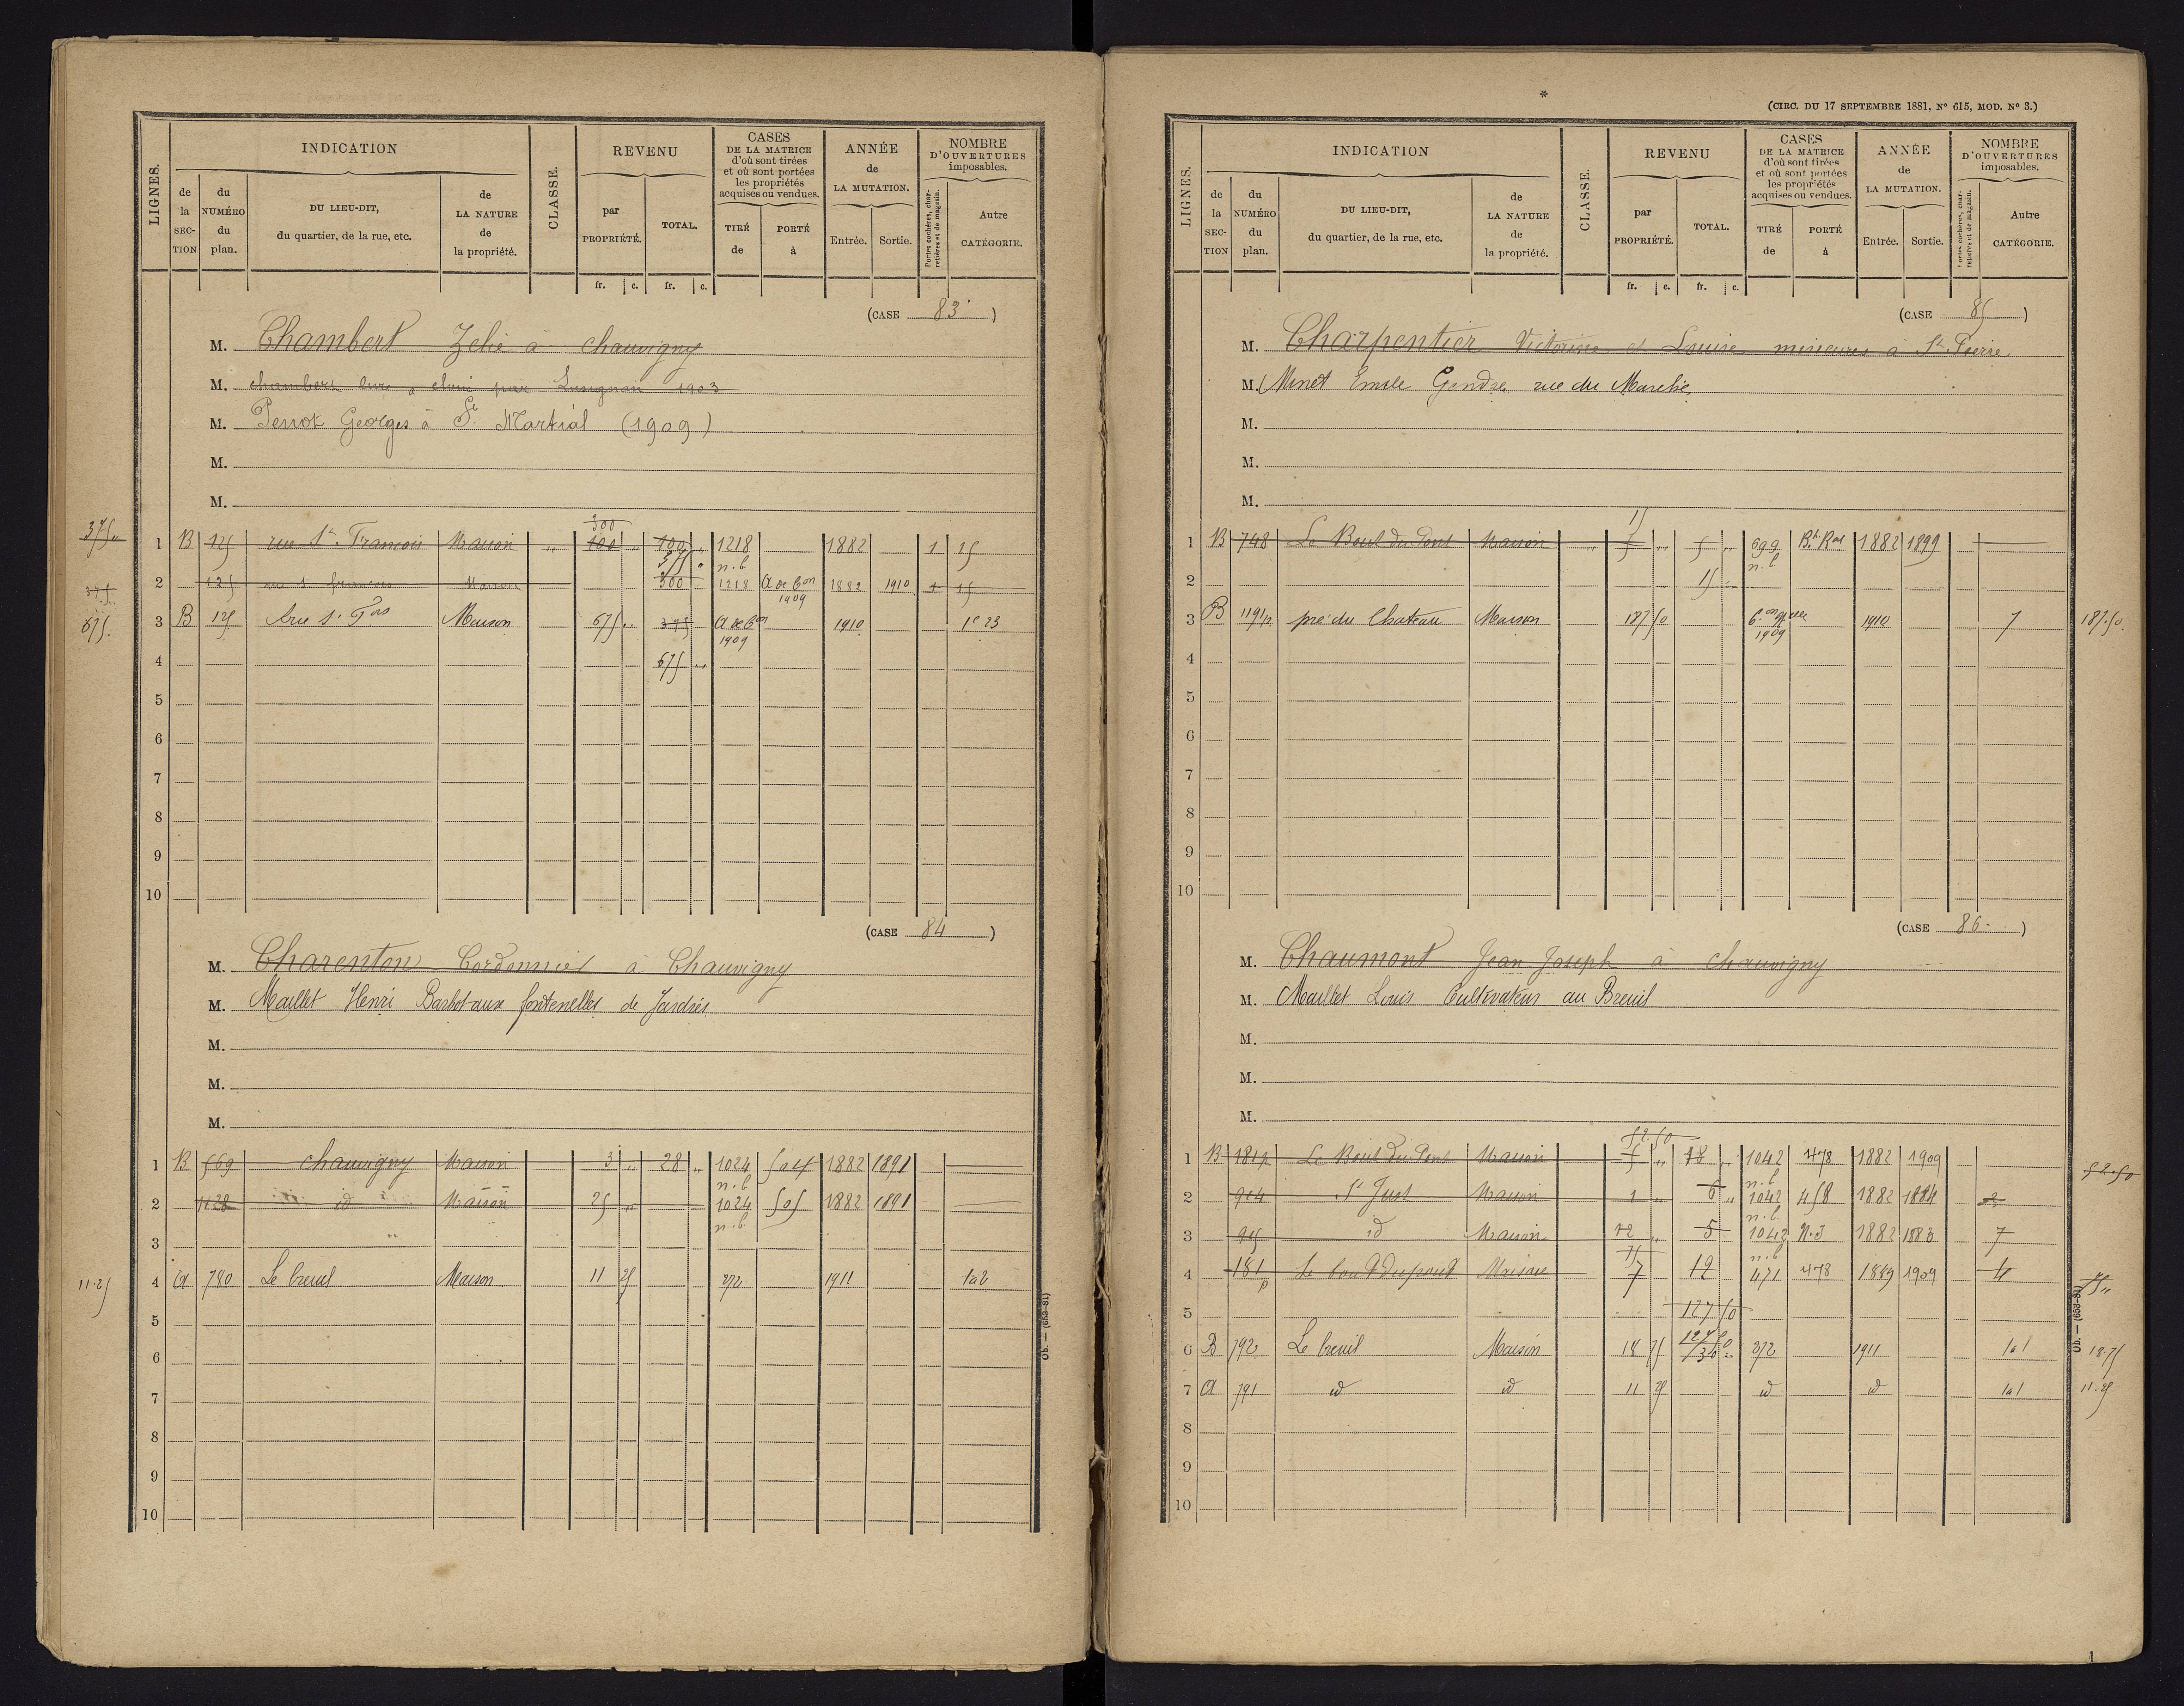 LIGNES.
INDICATION
de la SECTION
du NUMÉRO du plan.
DU LIEU-DIT,
du quartier, de la rue, etc.
de LA NATURE de la propriété.
CLASSE.
REVENU
par PROPRIÉTÉ.
TOTAL.
CASES
DE LA MATRICE
d'où sont tirées
et où sont portées
les propriétés
acquises ou vendues.
TIRÉ de
PORTÉ à
ANNÉE
de
LA MUTATION.
Entrée. Sortie.
NOMBRE
D'OUVERTURES
imposables.
Portes cochères, charretières et de magasin.
Autre
CATÉGORIE.
fr. c. fr. c.
(CASE 83)
M. Chambert Zelie à chauvigny
M. chambert
M. Perrot Georges à St Martial (1909)
M.
M.
300
375 "
1 B 125 rue St François Maison " 100 " 100 " 1218 n.b 1882 1 15
375
2 125 Maison 300 1218 1909 1882 1910 1 15
675. 3 B 125 Maison 675 " 375 1909 1910 1e 23
4 675 "
5
6
7
8
9
10
(CASE 84)
M. Charenton Cordonnier à Chauvigny
M. Maillet Henri fontenelles de Jardres
M.
M.
M.
1 B 569 chauvigny Maison 3 " 28 " 1024 n.b 504 1882 1891
2 1128 id Maison 25 " 1024 n.b. 505 1882 1891
3
11.25 4 A 780 Le breuil Maison 11 25 272 1911 1a2
5
6
7
8
9
10
Ob. — (653-81)
(CIRC. DU 17 SEPTEMBRE 1881, No 615, MOD. No 3.)
LIGNES.
INDICATION
de la SECTION
du NUMÉRO du plan.
DU LIEU-DIT,
du quartier, de la rue, etc.
de LA NATURE de la propriété.
CLASSE.
REVENU
par PROPRIÉTÉ.
TOTAL.
CASES
DE LA MATRICE
d'où sont tirées
et où sont portées
les propriétés
acquises ou vendues.
TIRÉ de
PORTÉ à
ANNÉE
de
LA MUTATION.
Entrée. Sortie.
NOMBRE
D'OUVERTURES
imposables.
Portes cochères, charretières et de magasin.
Autre
CATÉGORIE.
fr. c. fr. c.
(CASE 85)
M. Charpentier Victorine et Louise mineures à St Pierre
M. Minet Emile Gendre rue du Marché
M.
M.
M.
15
1 B 748 Le Bout du Pont Maison " 5 " 5 " 699 n.b 1882 1899
2 15
3 B 1191p pré du Chateau Maison 187 50 1909 1910 7 187.50
4
5
6
7
8
9
10
(CASE 86)
M. Chaumont Jean Joseph à chauvigny
M. Maillet Louis Cultivateur au Breuil
M.
M.
M.
52.50
1 B 181p Le Bout du Pont Maison 5 " 18 " 1042 n.b 478 1882 1909 52.50
2 914 St Just Maison 1 " 6 " 1042 n.b 458 1882 1884 2
3 915 id Maison 12 " 5 1042 n.b 1882 1883 7
75
4 181p Le bout du pont Maison 7 12 471 478 1889 1909 4 75 "
5 127 50
6 B 792 Le breuil Maison 18 75 272 1911 1a1 18.75
7 A 791 id id 11 25 id id 1a1 11.25
8
9
10
Ob. — (653-81)
1